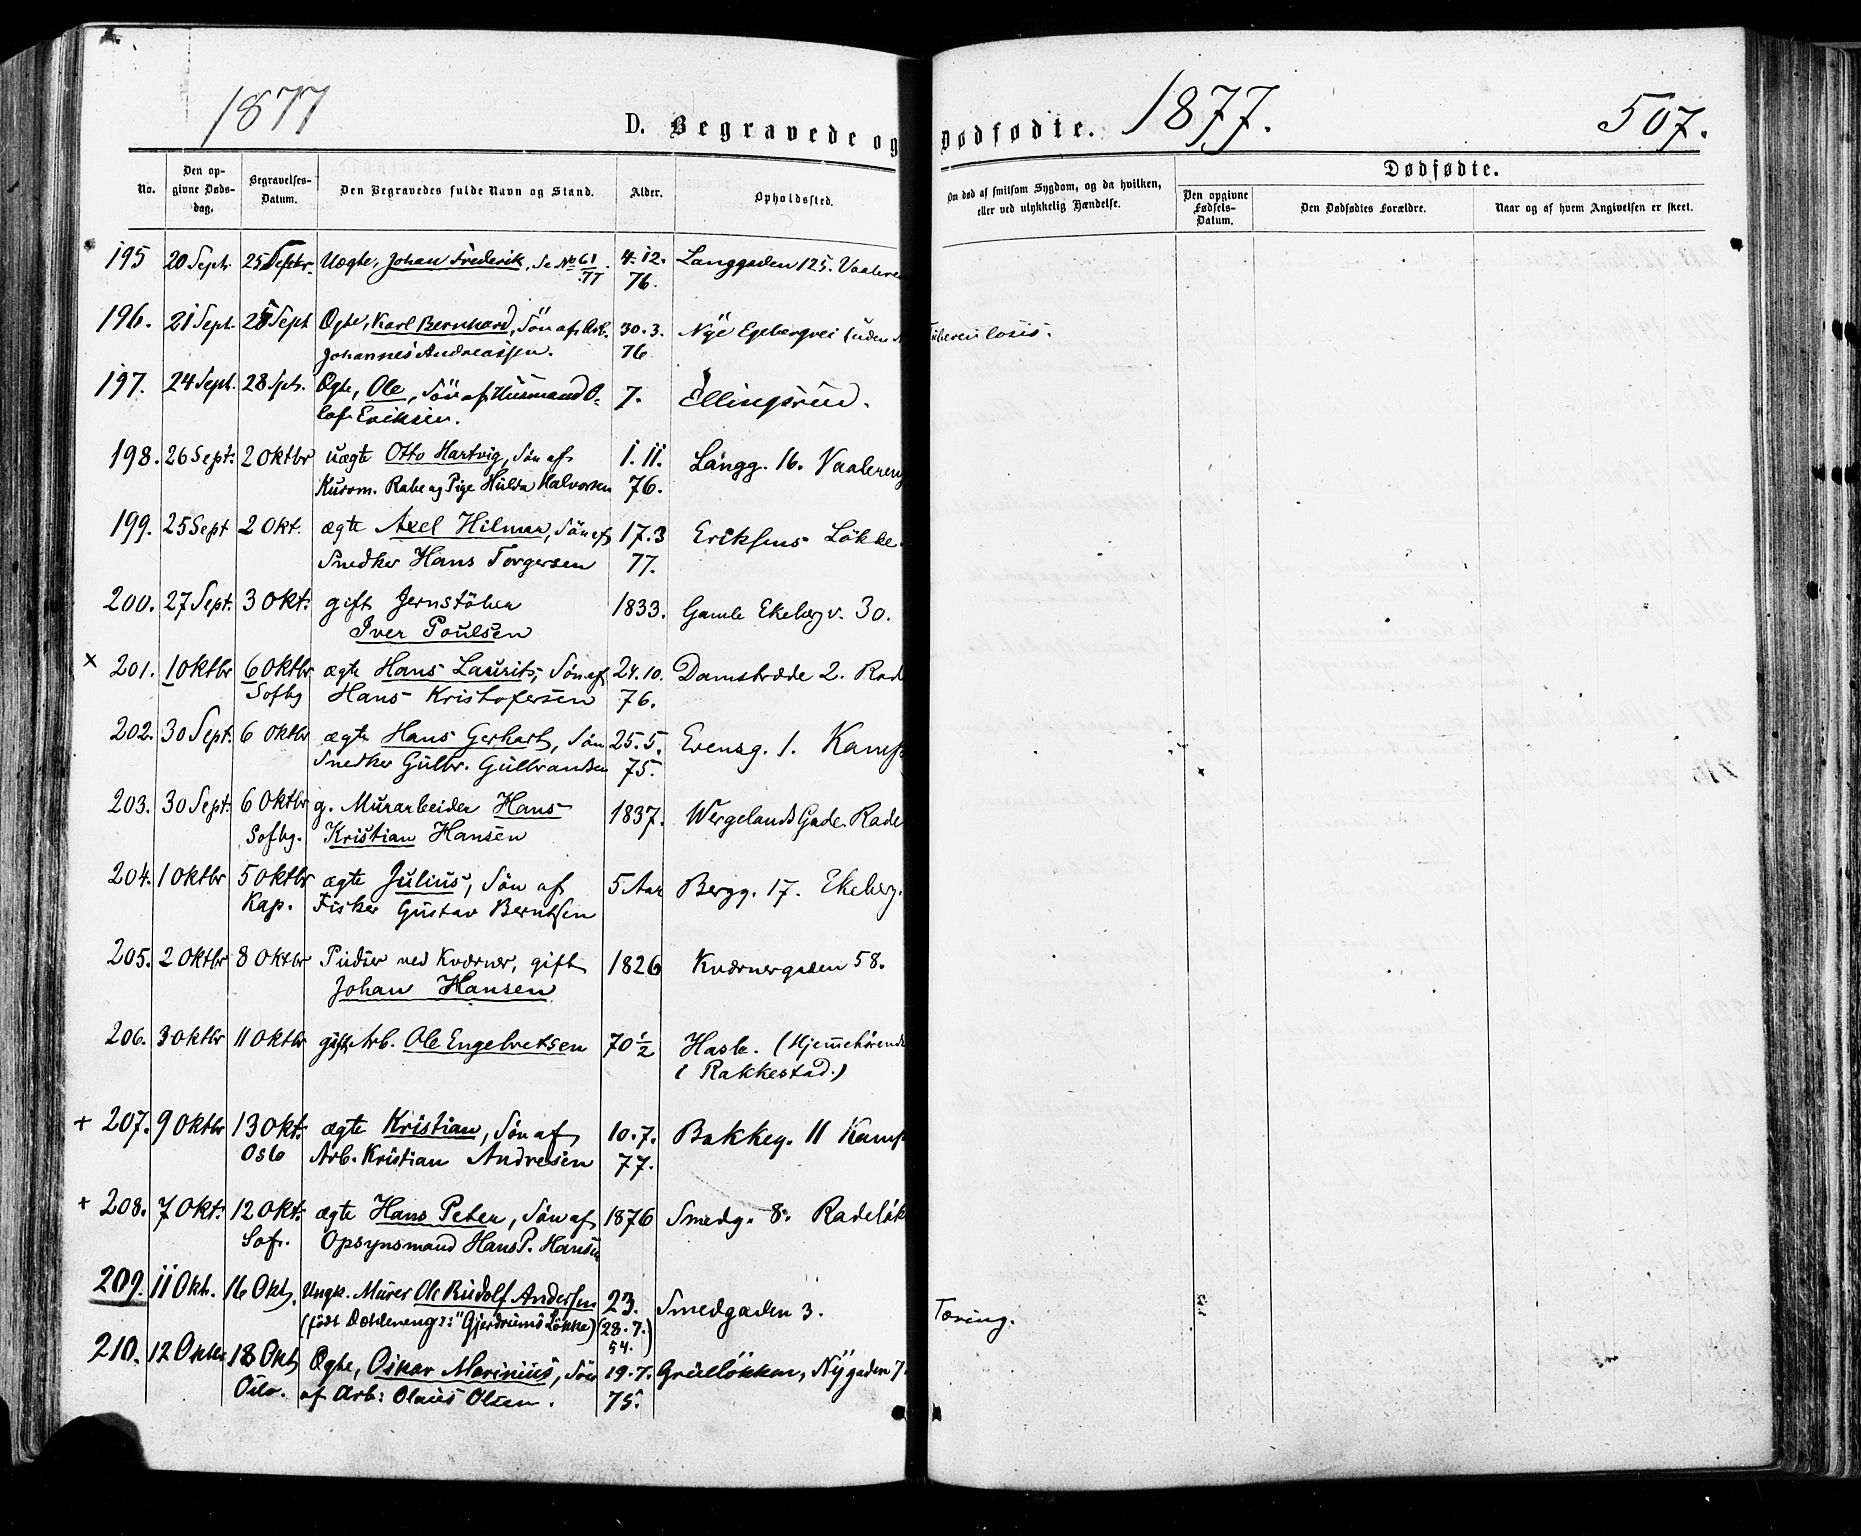 1877
D. Begravede og Dødfødte. 1877. 507.
No. Den opgivne Døds-dag. Begravelses-Datum. Den Begravedes fulde Navn og Stand. Alder. Opholdssted. Om død af smitsom Sygdom, og da hvilken, eller ved ulykkelig Hændelse. Dødfødte.
Den opgivne Fødsels-Datum. Den Dødfødtes Forældre. Naar og af hvem Angivelsen er skeet.
195 20 Sept. 25 Septbr. Uægte, Johan Frederik, Se No 61/77 4.12. Langgaden 125. Vaaleren
76.
196. 21 Sept. 25 Sept Ægte, Karl Bernhard, Søn af Arb. 30.3. Nye Egebergvei (uden Tuberculosis.
Johannes Andreassen. 76
197. 24 Sept. 28 Spt. Ægte, Ole, Søn af Husmand O- 7. Ellingsrud.
laf Eriksen.
198. 26 Sept. 2 Oktbr uægte Otto Hartvig, Søn af 1.11. Langg. 16. Vaalereng
Rabe og Pige Hulda Halvorsen 76.
199. 25 Sept 2 Okt. ægte Axel Hilmar, Søn af 17.3 Eriksens Løkke.
Snedker Hans Torgersen 77.
200. 27 Sept. 3 Okt. gift Jernstøber 1833. Gamle Ekebergv. 30.
Iver Poulsen
x 201. 1 Oktbr 6 Oktbr ægte Hans Laurits, Søn af 24.10. Damstræde 2. Rod
Sofbg Hans Kristofersen 76.
202. 30 Sept. 6 Oktbr ægte Hans Gerhart, Søn 25.5. Evensg. 1. Kamp
Snedker Gulbr. Gulbransen 75.
203. 30 Sept. 6 Oktbr g. Murarbeider Hans 1837. Wergelands Gade. Rode
Sofbg. Kristian Hansen
204. 1 Oktbr 5 Oktbr ægte Julius, Søn af 5 Aar Bergg. 17. Ekeberg.
Kap. Fisker Gustav Berntsen
205. 2 Oktbr 8 Oktbr Pudser ved Kværner, gift 1826 Kværnergaden 58.
Johan Hansen
206. 3 Oktbr 11 Oktbr gift Arb. Ole Engebretsen 70 1/2 Hasle. (Hjemmehørende
i Rakkestad.)
+ 207. 9 Oktbr 13 Okt. ægte Kristian, Søn af 10.7. Bakkeg. 11 Kamp
Oslo Arb. Kristian Andresen 77.
+ 208. 7 Okt. 12 Okt. ægte Hans Peter, Søn af 1876 Smedg. 8. Rodeløk
Sof. Opsynsmand Hans P. Hansen
209. 11 Okt. 16 Okt. Ungk. Murer Ole Rudolf Andersen 23. Smedgaden 3. Tæring.
(født Dæhleneng ɔ: "Gjerdrums Løkke) (28.7.54.)
210. 12 Oktb. 18 Okt Ægte, Oskar Marinius, Søn 19.7. Grülløkken, Nygaden 7
Oslo. af Arb: Olaus Olsen. 75.